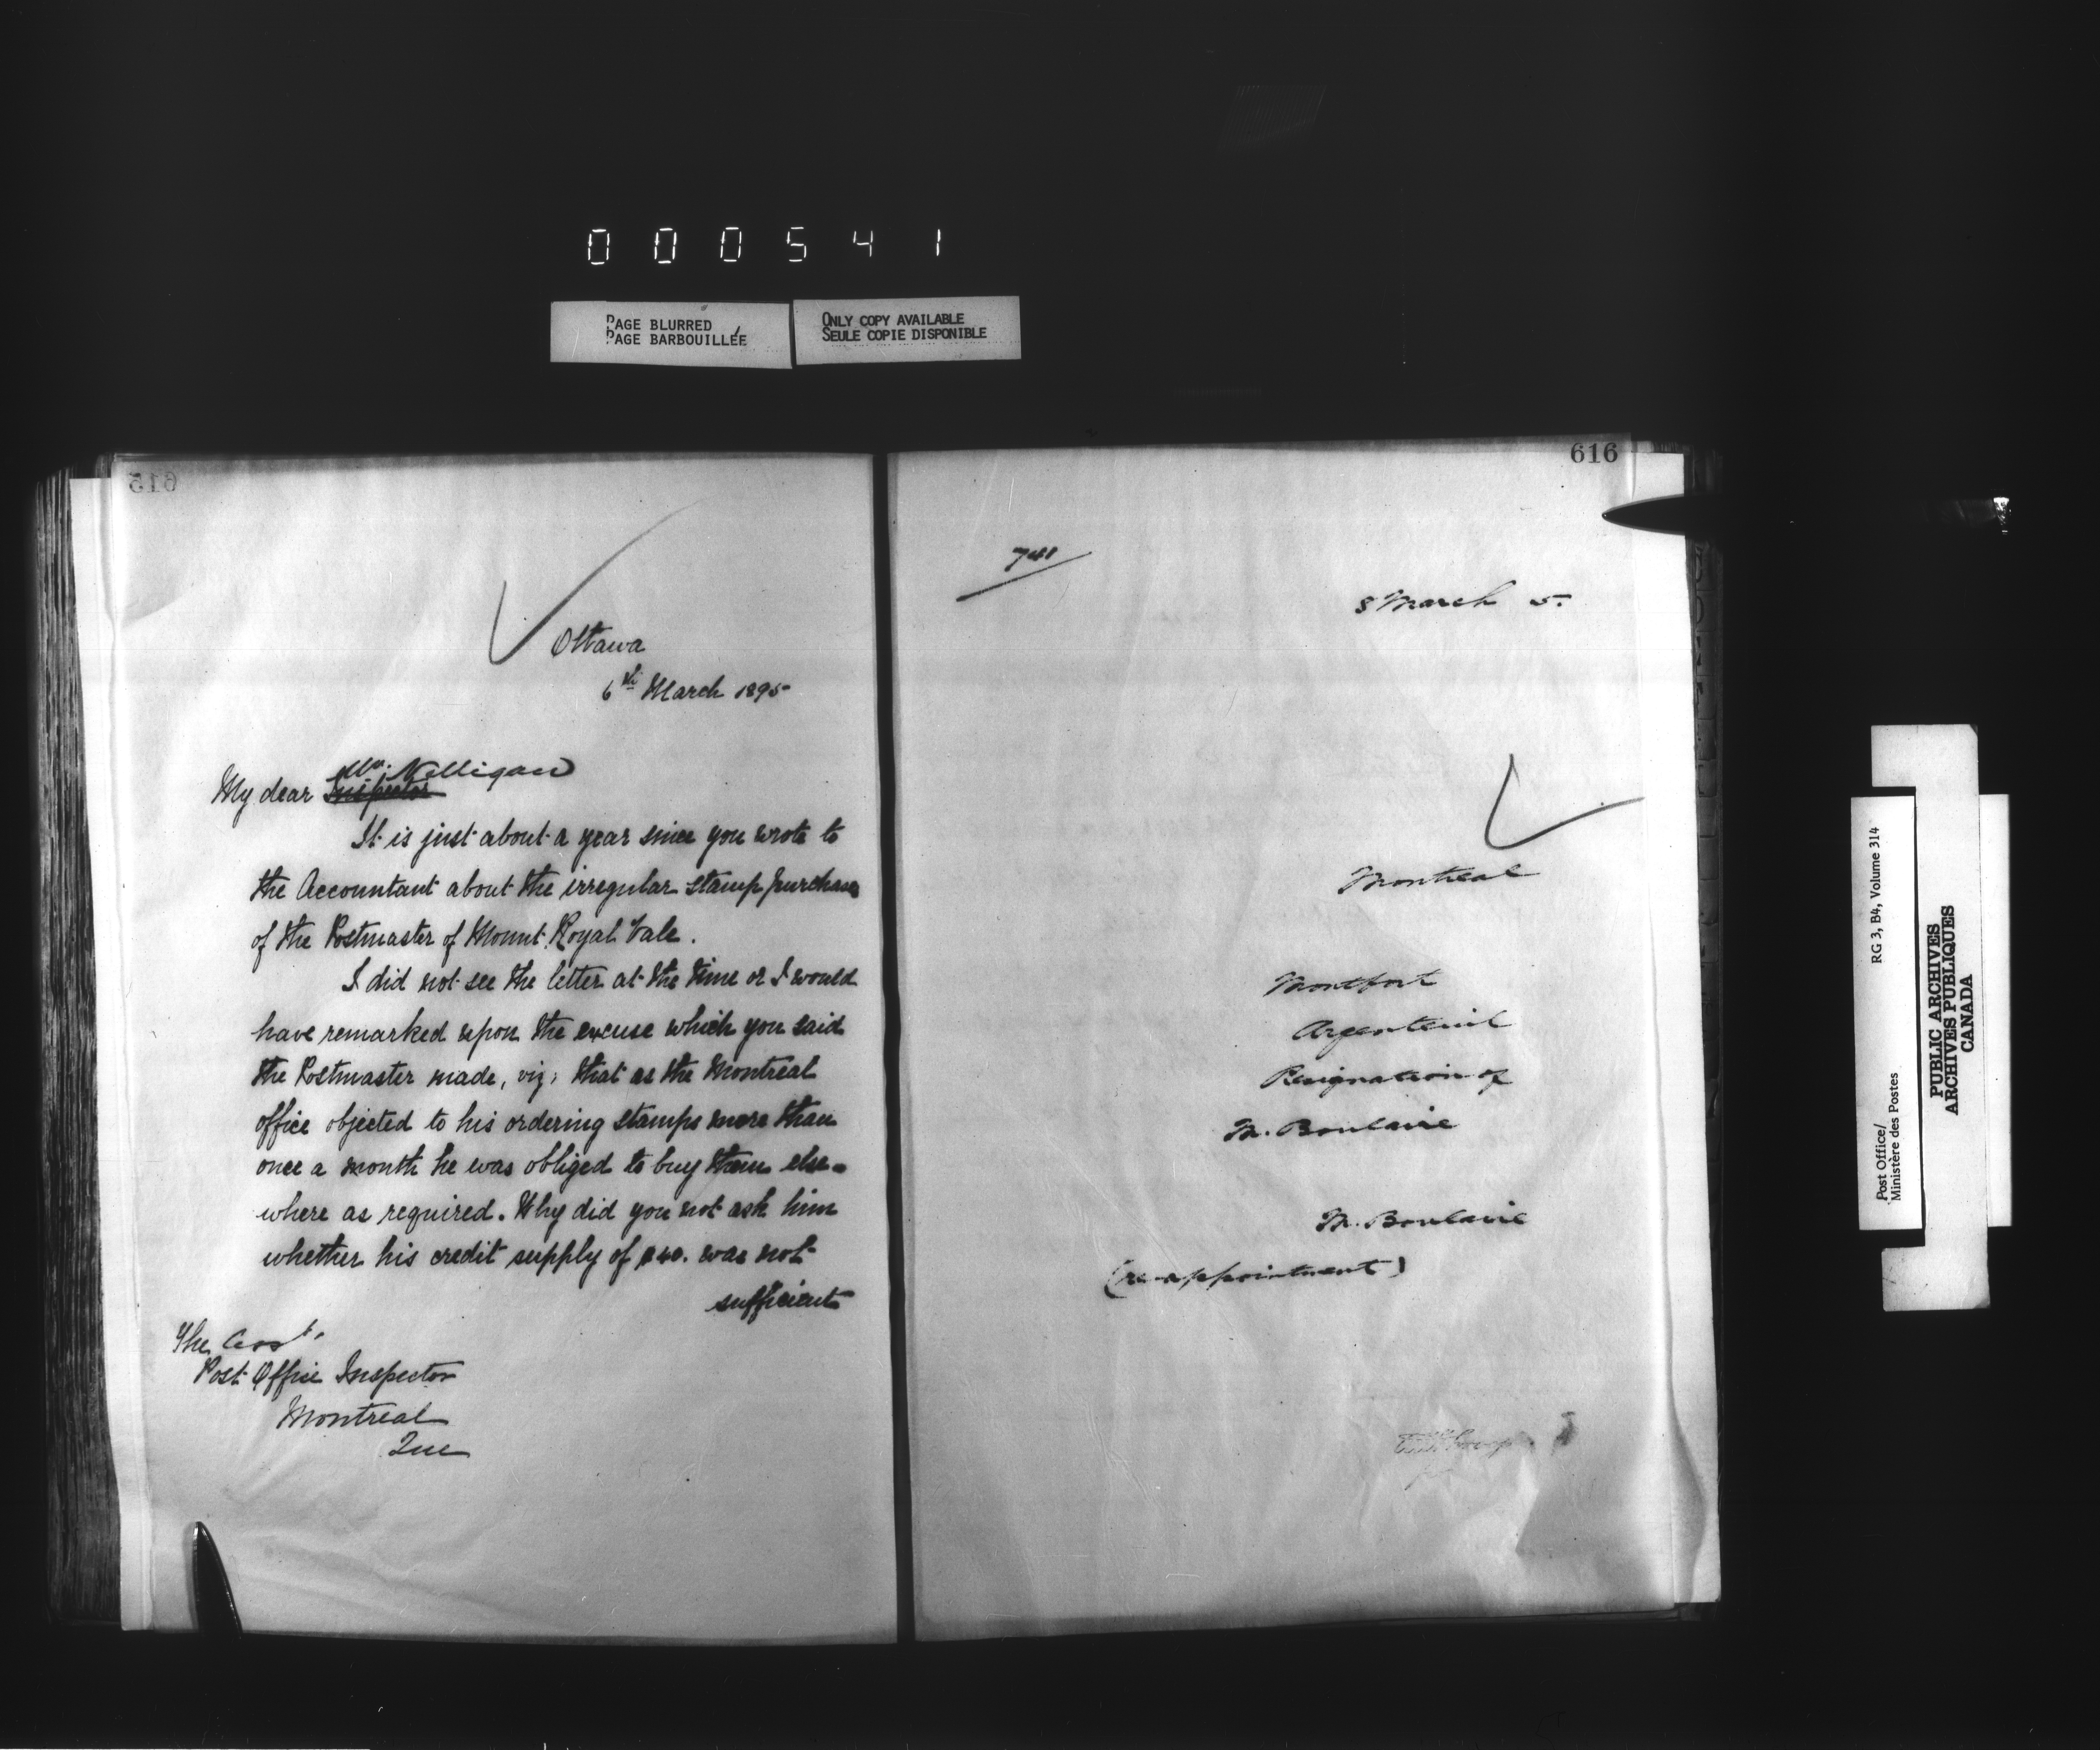 000541
PAGE BLURRED
PAGE BARBOUILLÉE
ONLY COPY AVAILABLE
SEULE COPIE DISPONIBLE
615
Ottawa
6th March 1895
Mr. Nelligan
My dear Inspector
It is just about a year since you wrote to
the Accountant about the irregular stamp purchases
of the Postmaster of Mount Royal Vale.
I did not see the letter at the time or I would
have remarked upon the excuse which you said
the Postmaster made, viz; that as the Montreal
office objected to his ordering stamps more than
once a month he was obliged to buy them else-
where as required. Why did you not ask him
whether his credit supply of $40. was not
sufficient
The Asst.
Post Office Inspector
Montreal
Que
616
741
8 March 5.
Montreal
Montfort
Argenteuil
Resignation of
M. Boulaire
M. Boulaire
(re-appointment)
Post Office/
Ministère des Postes
RG 3, B4, Volume 314
PUBLIC ARCHIVES
ARCHIVES PUBLIQUES
CANADA